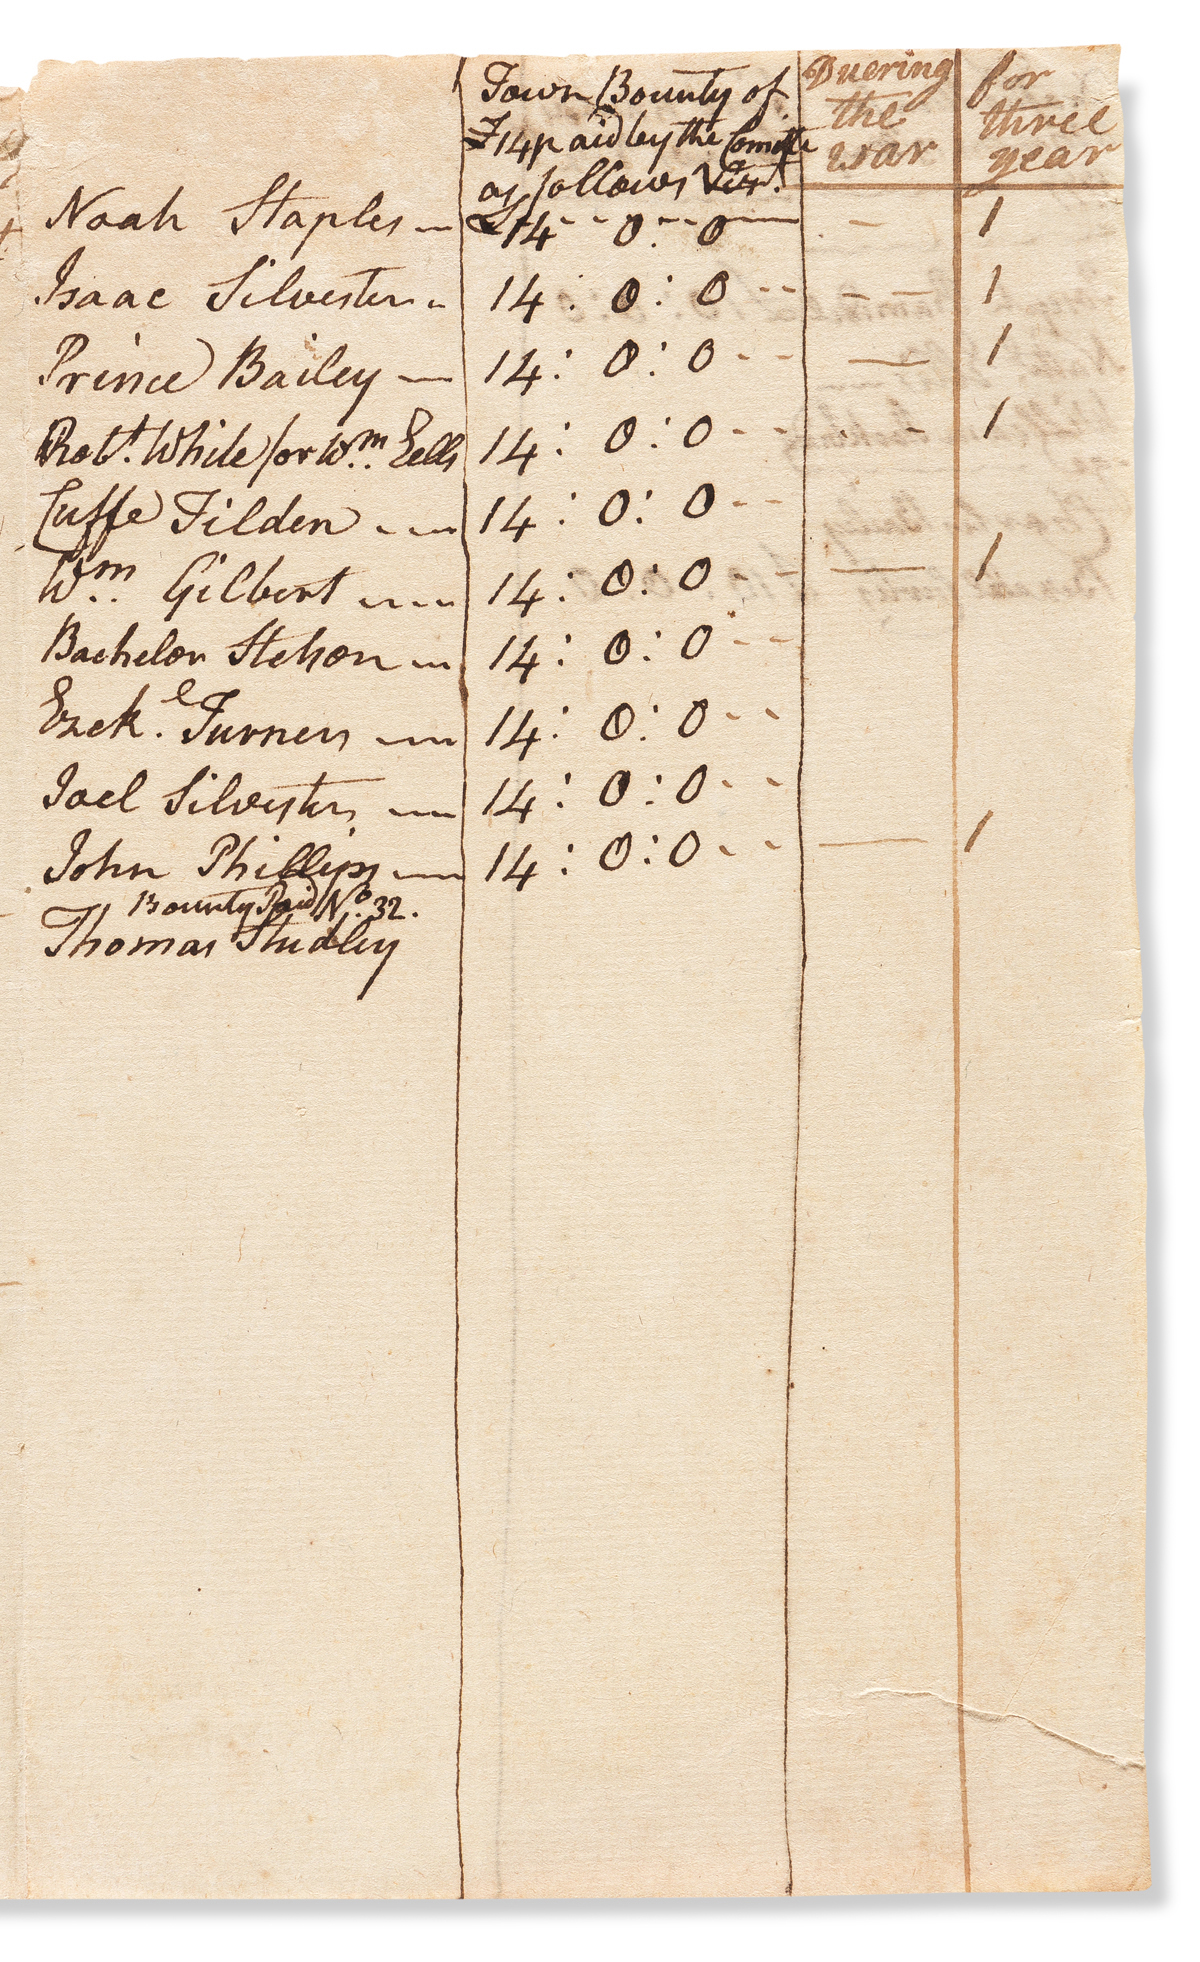 Town Bounty of
£14 paid by the Comitte
as follows Vizt.
Duering
the
war
for
three
year
Noah Staples £14 - - 0 - - 0 - 1
Isaac Silvester 14 : 0 : 0 - - - - 1
Prince Bailey 14 : 0 : 0 - - — 1
Robt. White for Wm. Eells 14 : 0 : 0 - - - - 1
Cuffe Tilden 14 : 0 : 0 - -
Wm. Gilbert 14 : 0 : 0 - - — 1
Bachelor Stetson 14 : 0 : 0 - -
Ezekl. Turner 14 : 0 : 0 - -
Joel Silvester 14 : 0 : 0 - -
John Phillips 14 : 0 : 0 - - — 1
Bounty Paid No. 32.
Thomas Studley